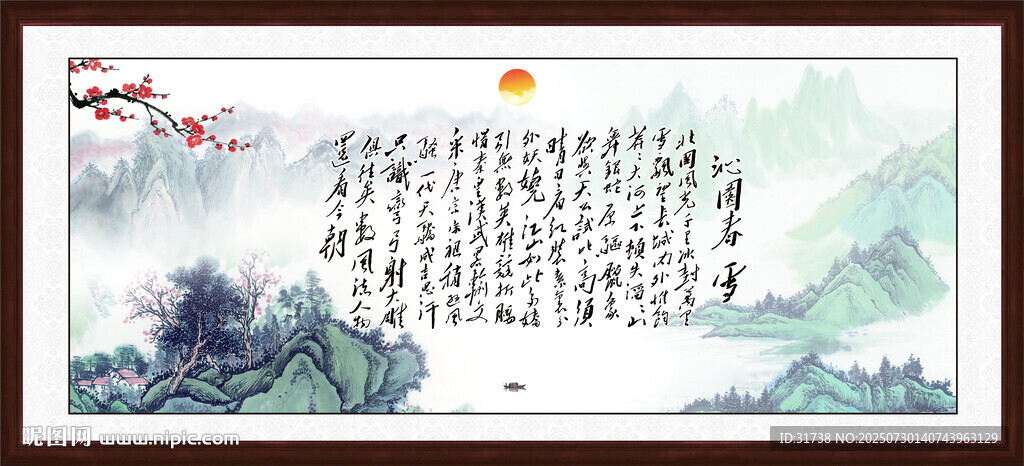 沁園春 雪
北國風光千里冰封萬里
雪飄望長城内外惟餘
莽莽大河上下頓失滔滔山
舞銀蛇原驅蠟象
欲與天公試比高須
晴日看紅裝素裹分
外妖嬈江山如此多嬌
引無數英雄競折腰
惜秦皇漢武略輸文
采唐宗宋祖稍遜風
騷一代天驕成吉思汗
只識彎弓射大雕
俱往矣數風流人物
還看今朝
昵图网 www.nipic.com
ID:31738 NO:20250730140743963129